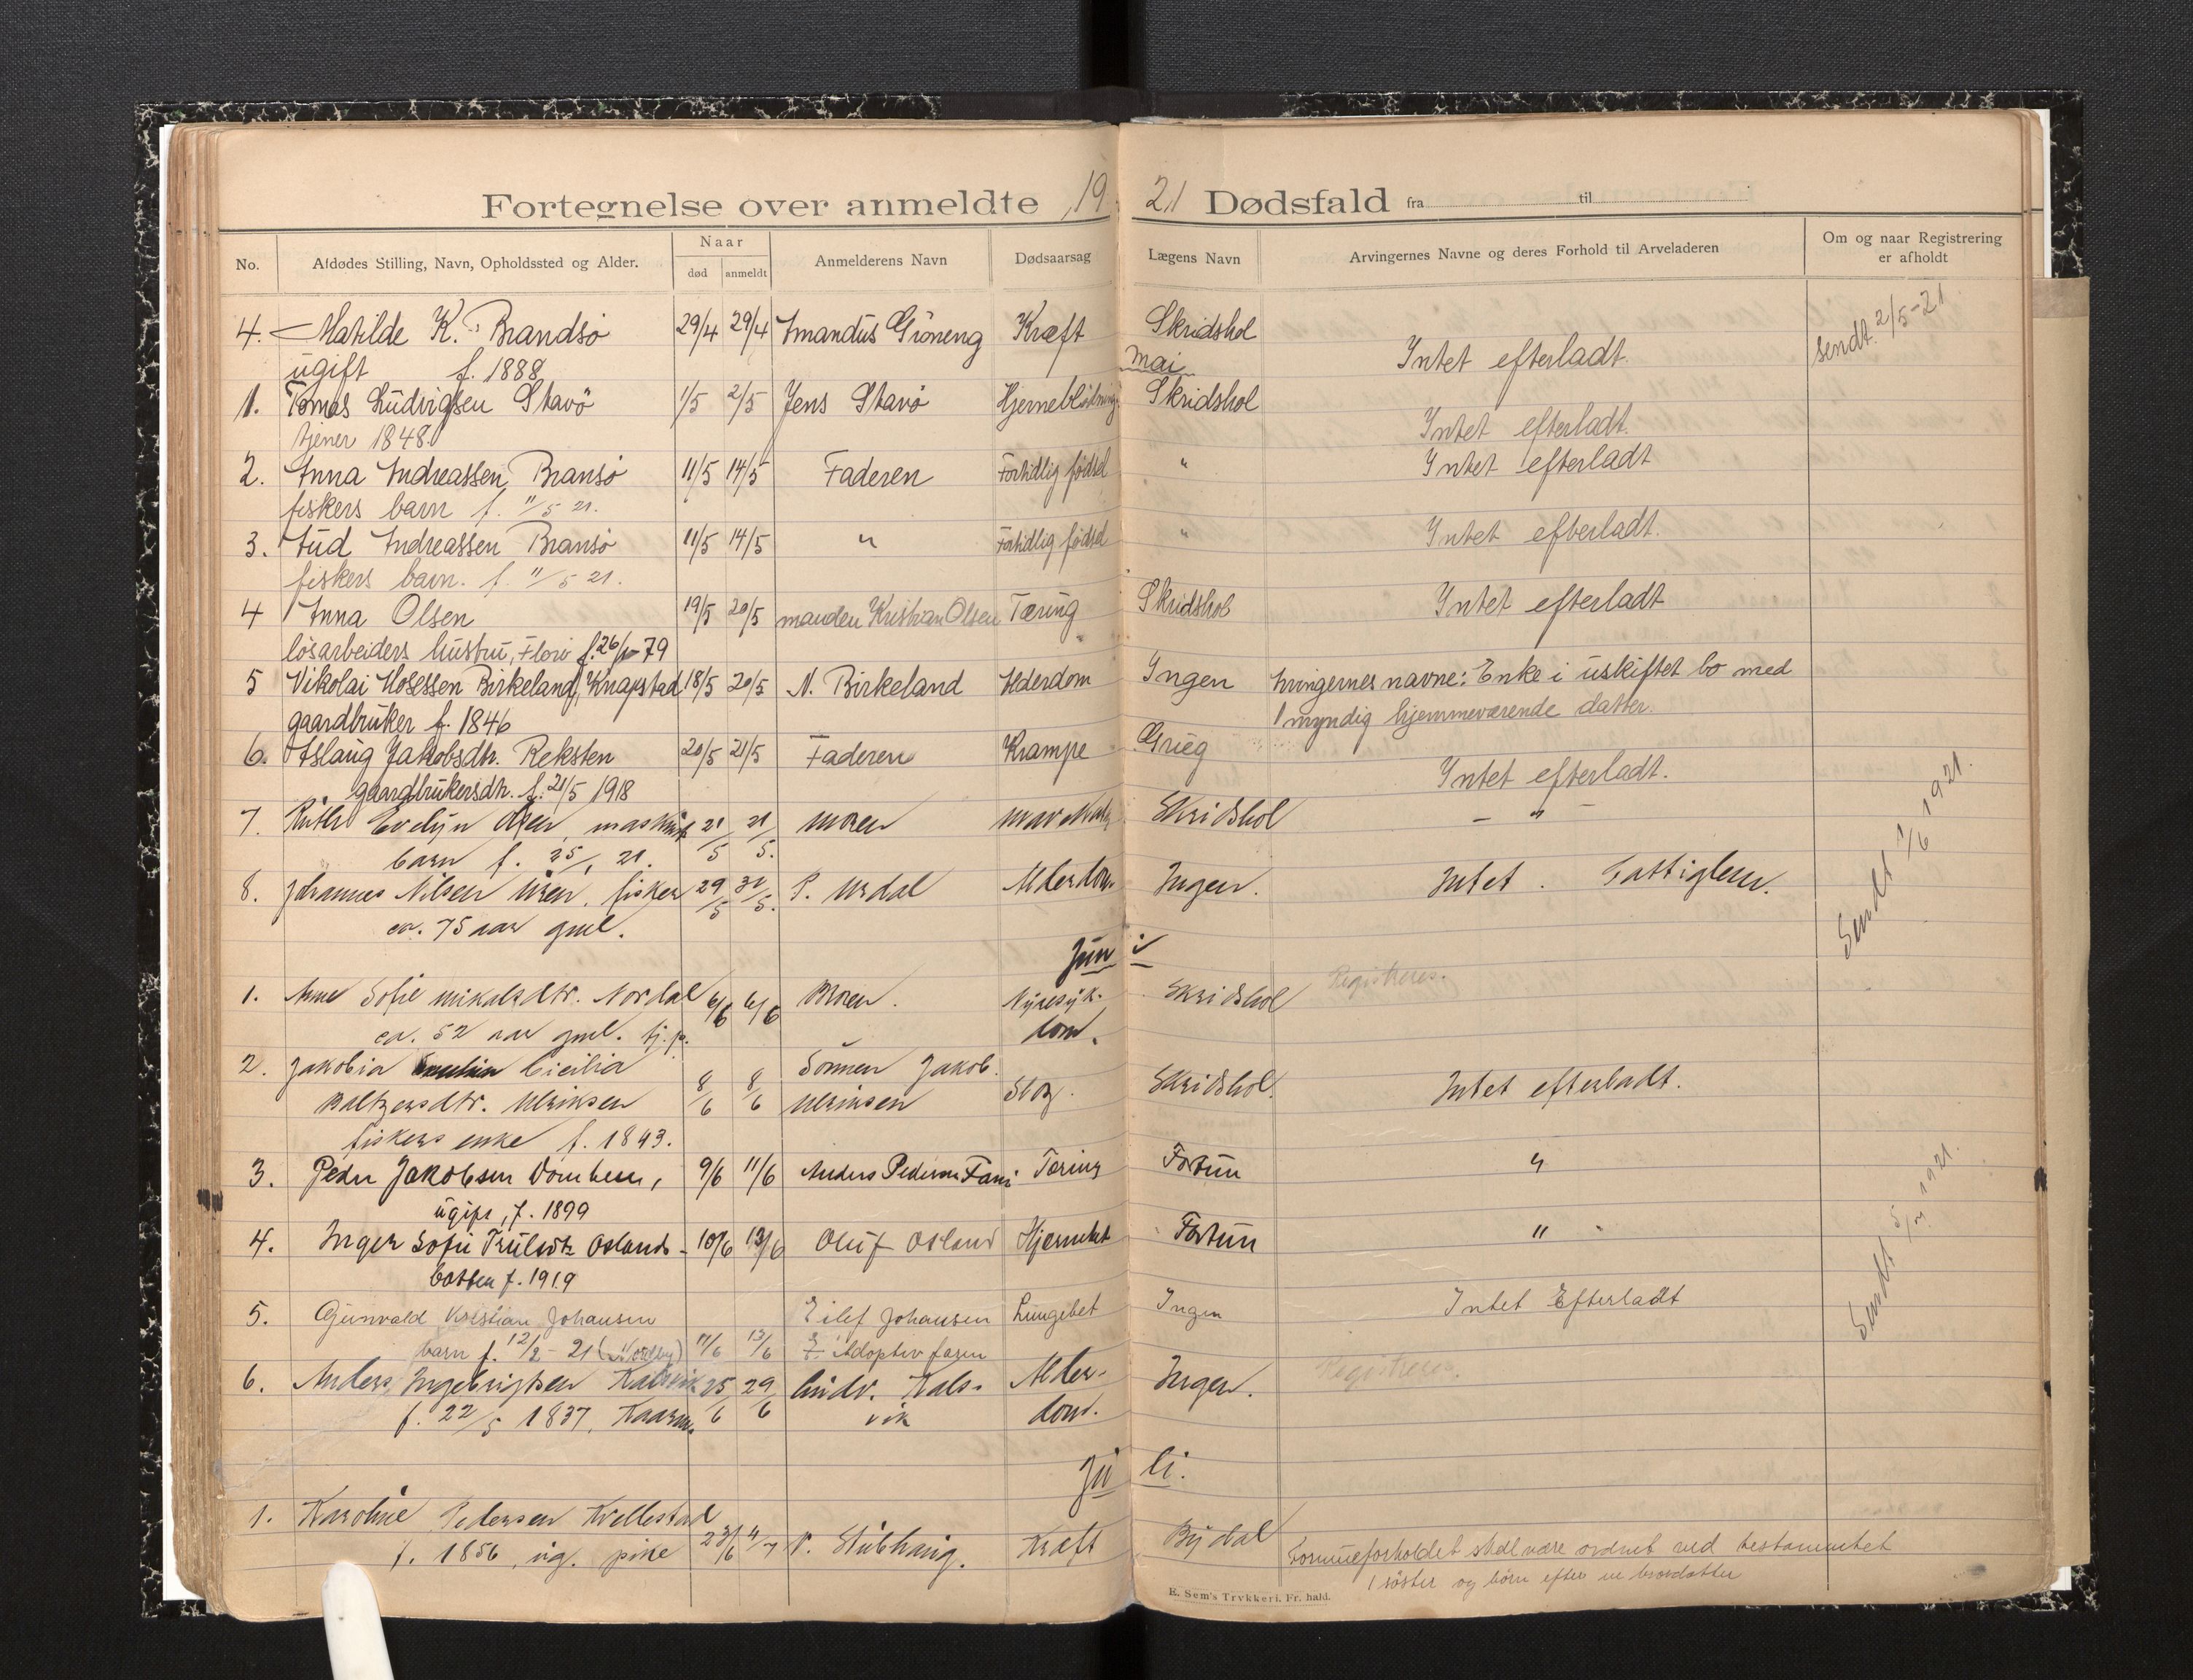 Fortegnelse over anmeldte 1921 Dødsfald fra til
No. Afdødes Stilling, Navn, Opholdssted og Alder. Naar død anmeldt Anmelderens Navn Dødsaarsag Lægens Navn Arvingernes Navne og deres Forhold til Arveladeren Om og naar Registrering er afholdt
4. Matilde K. Brandsø 29/4 29/4 Amandus Gröneng Kræft Skridshol Intet efterladt. sendt 2/5-21
ugift f. 1888
Mai
1. Tomas Ludvigsen Stavö 1/5 2/5 Jens Stavö Hjerneblödning Skridshol Intet efterladt.
tjener 1848.
2. Anna Andreassen Bransø 11/5 14/5 Faderen Fortidlig födsel " Intet efterladt
fiskers barn f. 11/5 21.
3. Aud Andreassen Bransø 11/5 14/5 " Fortidlig födsel " Intet efterladt.
fiskers barn. f. 11/5 21.
4 Anna Olsen 19/5 20/5 manden Kristian Olsen Tæring Skridshol Intet efterladt
lösarbeiders hustru, Florö f. 79
5 Nikolai Mosessen Birkeland, Knapstad 18/5 20/5 N. Birkeland Alderdom Ingen Arvingernes navne: Enke i uskiftet bo med
gaardbruker f. 1846 1 myndig hjemmeværende datter.
6. Aslaug Jakobsdtr. Reksten 20/5 21/5 Faderen Krampe Grieg Intet efterladt.
gaardbrukersdtr. f. 21/5 1918
7. Ruth Evelyn Olsen, 21/5 21/5. Moren Skridshol - " -
barn f. 25/1 21.
8. Johannes Nilsen Uren, fisker 29/5 31/5. P. Urdal Alderdom. Ingen. Intet. Fattiglem. Sendt 1/6 1921.
ca. 75 aar gml.
Juni
1. Anne Sofie Mikalsdtr. Nordal 6/6 6/6 Broren. Nyresyk- Skridshol Registreres.
ca. 52 aar gml. tj.p. dom.
2. Jakobia Cicilia 8/6 8/6 Sönnen Jakob. Skridshol. Intet efterladt.
Baltzersdtr. Ulriksen Ulriksen Slag.
fiskers enke f. 1843.
3. Peder Jakobsen Dombesten, 9/6 11/6 Anders Pedersen Tæring Fortun "
ugift, f. 1899
4. Inger Sofie Trulsdtr Osland- 10/6 13/6 Oluf Osland Fortun "
botten f. 1919
5. Gunvald Kristian Johansen Eilef Johansen Lungebet Ingen Intet Efterladt Sendt 5/7 1921.
barn f. 12/2 - 21 (Nordby) 11/6 13/6 Adoptivfaren
6. Anders Ingebrigtsen Kalsvik 25/6 29/6 Andr. Kals- Alder- Ingen. Registreres.
f. 22/5 1837, vik dom.
Juli.
1. Karoline Pedersen Kvellestad
f. 1856, ug. pike 23/6 4/7 P. Stubhaug. Kræft Bydal Formueforholdet skal være ordnet ved testamentet
1 söster og börn efter en brordatter
E. Sem's Trykkeri. Fr.hald.